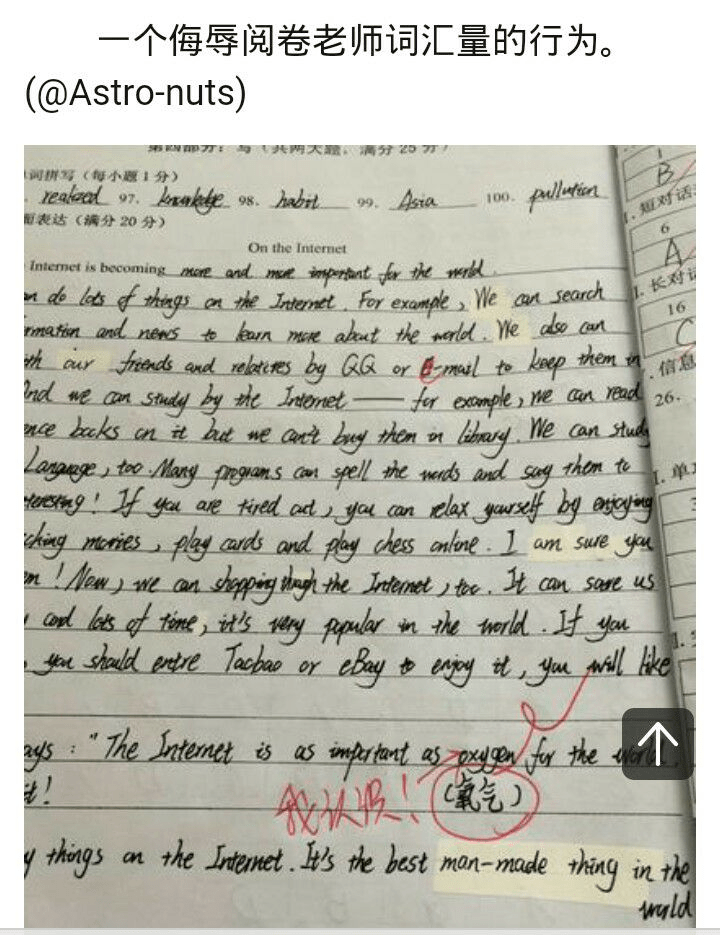 一个侮辱阅卷老师词汇量的行为。
(@Astro-nuts)
词拼写（每小题1分）
realized 97. knowledge 98. habit 99. Asia 100. pullution
面表达（满分20分）
On the Internet
Internet is becoming more and more important for the world.
do lots of things on the Internet. For example, We can search
and news to learn more about the world. We also can
our friends and relatives by QQ or E-mail to keep them in
And we can study by the Internet —— for example, we can read
books on it but we can't buy them in library. We can study
Language, too. Many programs can spell the words and say them to
! If you are tired out, you can relax yourself by enjoying
movies, play cards and play chess online. I am sure you
! Now, we can shopping though the Internet, too. It can save us
and lots of time, it's very popular in the world. If you
, you should entre Taobao or eBay to enjoy it, you will like
: "The Internet is as important as oxygen for the world,
我认识！ (氧气)
things on the Internet. It's the best man-made thing in the
world
1
B
短对话
6
A
长对话
16
C
信息
26.
单